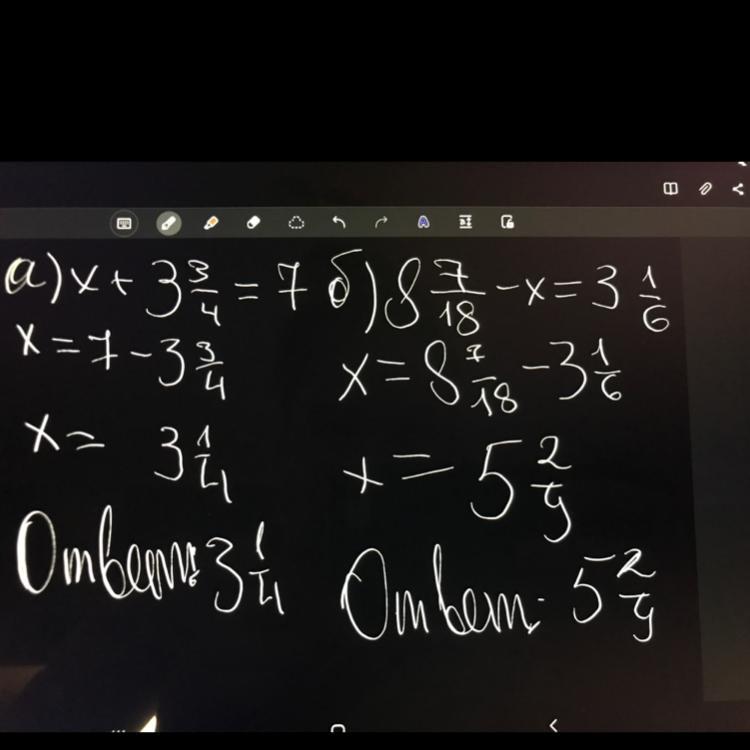 а) x + 3 3/4 = 7
x = 7 - 3 3/4
x = 3 1/4
Ответ: 3 1/4
б) 8 7/18 - x = 3 1/6
x = 8 7/18 - 3 1/6
x = 5 2/9
Ответ: 5 2/9